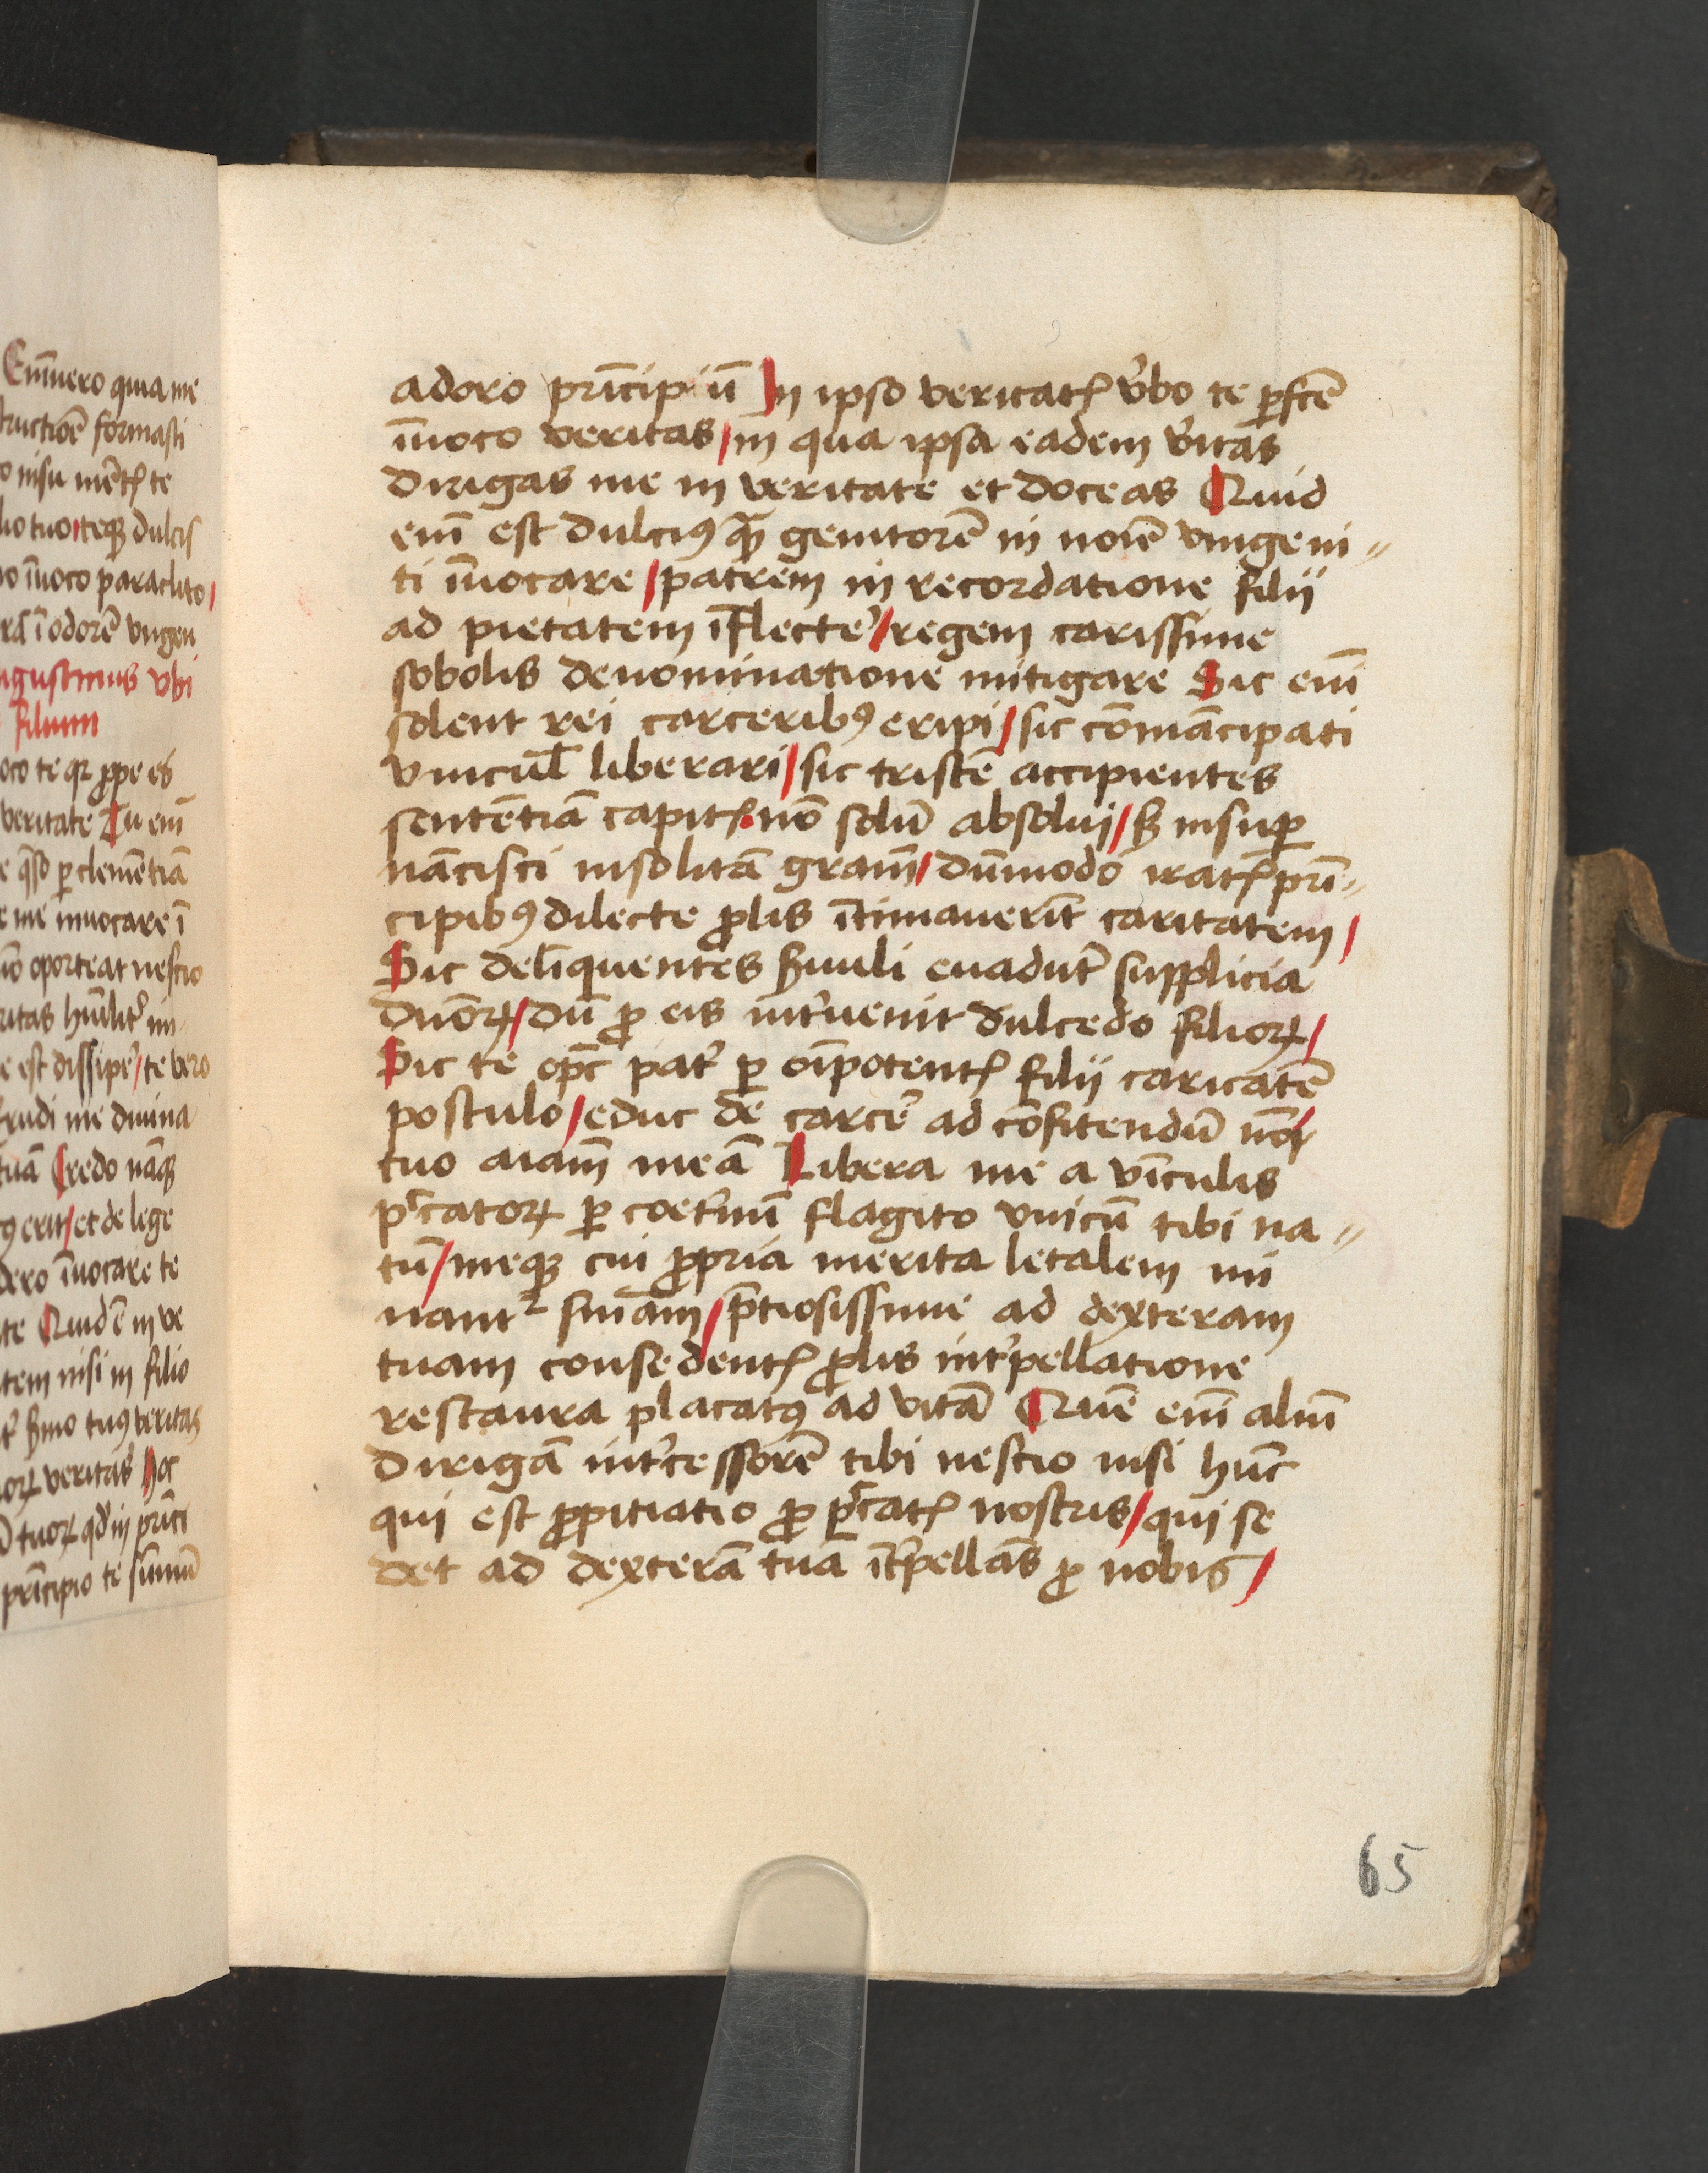 Eni̅uero quia me
tructioe̅ formasti
lio tuo / teqȝ dulcis
o i̅uoco paraclito /
ra̅ i̅ odore̅ vngen
ugustinus vbi
filium
oco te qꝛ ꝓpe es
veritate Tu eni̅
e q̅so ꝑ cleme̅tia̅
e me inuocare i̅
no̅ oporteat nescio
e est dissiper̉ / te vero
Erudi me diuina
tua̅ Credo na̅qȝ
ꝰ erit / et de lege
dero i̅uocare te
te Quid e̅ in ve
tem nisi in filio
ẜmo tuꝰ veritas
oꝝ veritas Hoc
tuoꝝ qđ in pri̅ci
pri̅cipio te su̅mu̅
adoro pri̅cipiu̅ In ipso veritatꝭ v̉bo te ꝑfc̅e̅
i̅uoco veritas / in qua ipsa eadem v̉itas
dirigas me in veritate et doceas Quid
eni̅ est dulciꝰ qꝫ̅ genitore̅ in noi̅e̅ vnigeni〃
ti i̅uocare / patrem in recordatione filij
ad pietatem i̅flecter̉ / regem carissime
sobolis denominatione mitigare Sic eni̅
solent rei carceribꝰ eripi / sic co̅ma̅cipati
vincul̅ liberari / sic triste̅ accipientes
sente̅tia̅ capitꝭ no̅ solu̅ absolui / ẜ insuꝑ
na̅cisci insolita̅ gram̅ / du̅modo iratꝭ pri̅〃
cipibꝰ dilecte ꝓlis i̅timauerit̅ caritatem /
Sic deli̅quentes ẜuuli euadu̅t̉ supplicia
duo̅ꝝ / du̅ ꝓ eis int̉uenit dulcedo filioꝝ /
Sic te op̅c pat̉ ꝑ oi̅potentꝭ filij caritate̅
postulo / educ de carcer̉ ad co̅fitendu̅ no̅i
tuo aiam̅ mea̅ Libera me a vi̅culis
p̅catoꝝ ꝑ coet̉nu̅ flagito vnicu̅ tibi na〃
tu̅ / meqȝ cui ꝓpria merita letalem mi
nant² sn̅iam / p̅tiosissime ad dexteram
tuam consedentꝭ ꝓlis int̉pellatione
restaura placatꝰ ad vita̅ Que̅ eni̅ aliu̅
diriga̅ int̉cessore̅ tibi nescio nisi hu̅c
qui est ꝓpitiatio ꝓ p̅catꝭ nostris / qui se
det ad dextera̅ tua̅ i̅t̉pella̅s ꝓ nobis /
65